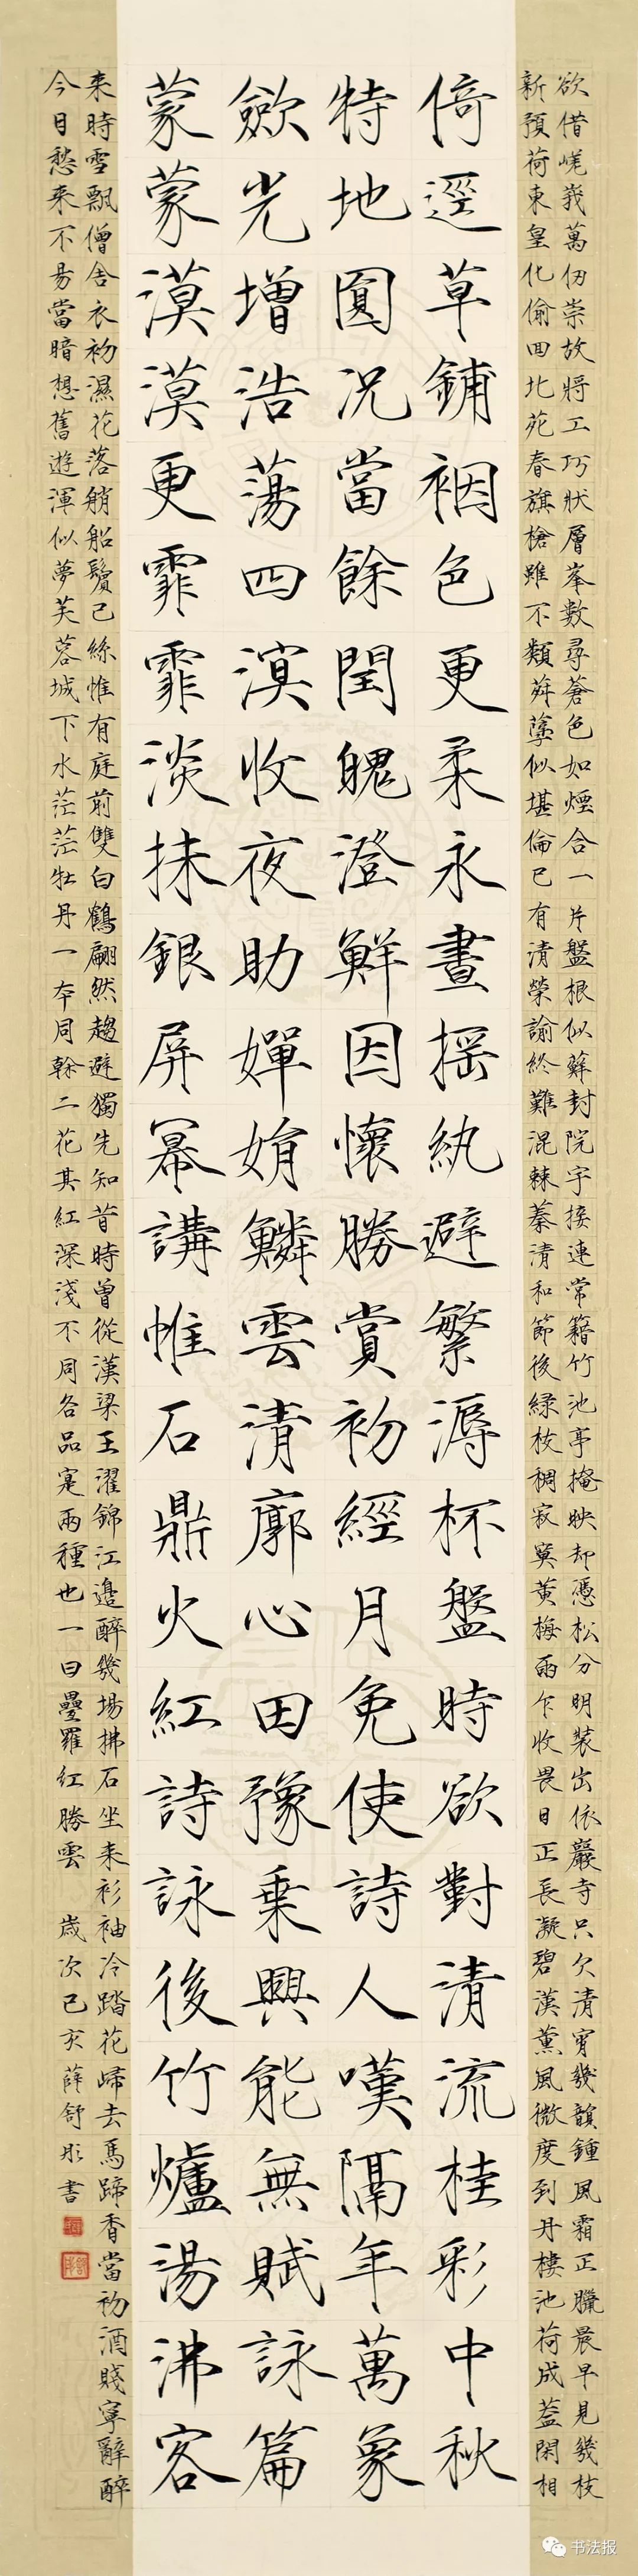 欲借嵯峩萬仞崇故將工巧狀層峯數尋蒼色如煙合一片盤根似蘚封院宇接連常籍竹池亭掩映却憑松分明裝出依巖寺只欠清宵幾韻鍾風霜正臘晨早見幾枝
新預荷東皇化偷回北苑春旗槍雖不類荈蕐似堪倫已有清榮諭終難混棘蓁清和節後緑枝稠寂寞黄梅雨乍收畏日正長凝碧漢薰風微度到丹樓池荷成蓋閑相
倚逕草鋪裀色更柔永晝摇紈避繁溽杯盤時欲對清流桂彩中秋
特地圓况當餘閏魄澄鮮因懷勝賞初經月免使詩人嘆隔年萬象
歛光增浩蕩四溟收夜助嬋娟鱗雲清廓心田豫乗興能無賦詠篇
蒙蒙漠漠更霏霏淡抹銀屏冪講惟石鼎火紅詩詠後竹爐湯沸客
来時雪飄僧舍衣初濕花落艄船鬢已絲惟有庭前雙白鶴翩然趨避獨先知昔時曾從漢梁王濯錦江邉醉幾場拂石坐来衫袖冷踏花歸去馬蹄香當初酒賤寧辭醉
今日愁来不易當暗想舊遊渾似夢芙蓉城下水茫茫牡丹一夲同榦二花其紅深淺不同名品寔兩種也一曰疊羅紅勝雲 歲次己亥薛舒彤書
书法报